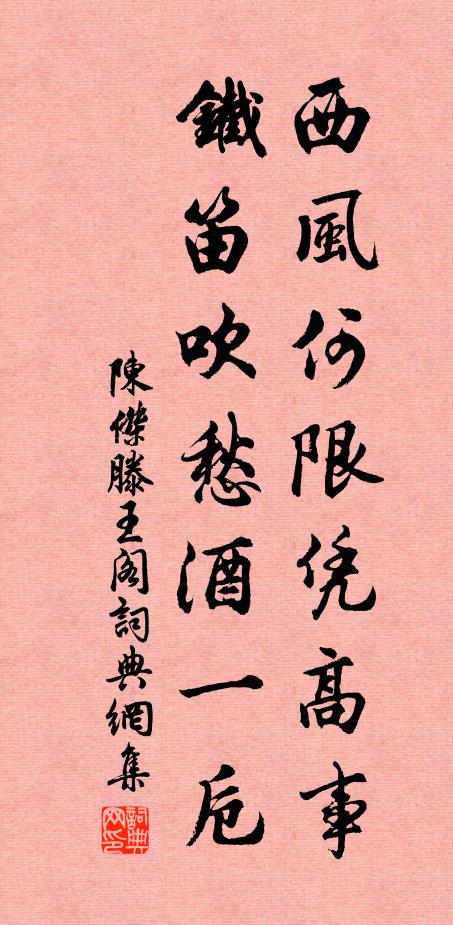 西風何限凭高事
鐵笛吹愁酒一卮
陳傑滕王閣詞典網集
詞典网印